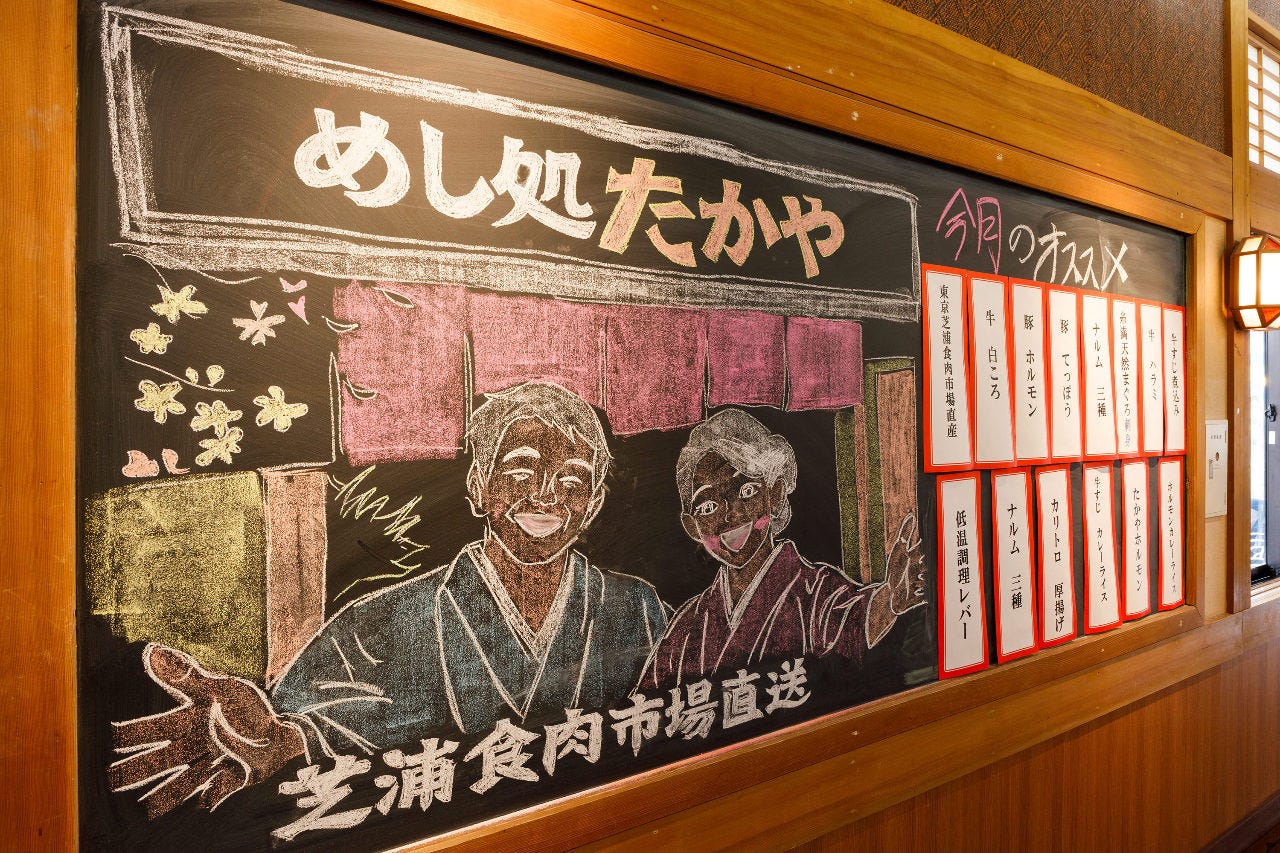 めし処たかや
今月のオススメ
牛すじ煮込み
牛 ハラミ
糸満天然まぐろ刺身
ナルム 三種
豚 てっぽう
豚 ホルモン
牛 白ころ
東京芝浦食肉市場直産
ホルモンカレーライス
たかやホルモン
牛すじ カレーライス
カリトロ 厚揚げ
ナルム 三種
低温調理レバー
芝浦食肉市場直送